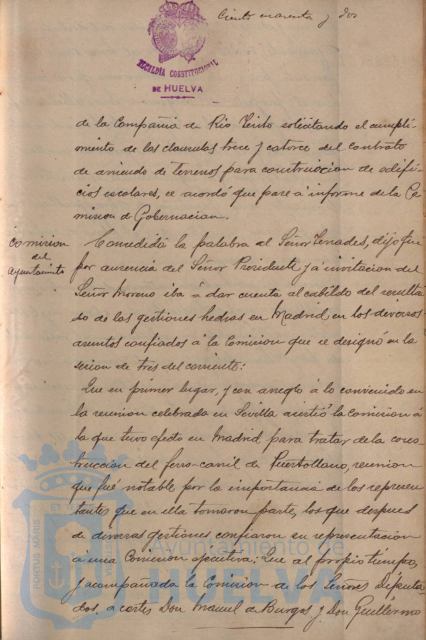 Ciento cuarenta y dos
ALCALDIA CONSTITUCIONAL
DE HUELVA
de la Compañia de Rio Tinto solicitando el cumpli-
miento de las clausulas trece y catorce del contrato
de arriendo de terrenos para construccion de edifi-
cios escolares, se acordó que pase á informe de la Co-
mision de Gobernacion.
Comision
del
Ayuntamiento
Concedida la palabra al Señor Tenades, dijo que
por ausencia del Señor Presidente y á invitacion del
Señor Moreno iba á dar cuenta al cabildo del resulta-
do de las gestiones hechas en Madrid en los diversos
asuntos confiados á la Comision que se designó en la
sesion de tres del corriente:
Que en primer lugar, y con arreglo á lo convenido en
la reunion celebrada en Sevilla asistió la Comision á
la que tuvo efecto en Madrid para tratar de la cons-
truccion del ferro-carril de Puertollano, reunion
que fué notable por la importancia de los represen-
tantes que en ella tomaron parte, los que despues
de diversas gestiones confiaron su representacion
á una Comision ejecutiva: Que al propio tiempo,
y acompañada la Comision de los Señores Diputa-
dos á cortes Don Manuel de Burgos y Don Guillermo
PORTUS MARIS
Ayuntamiento de
HUELVA